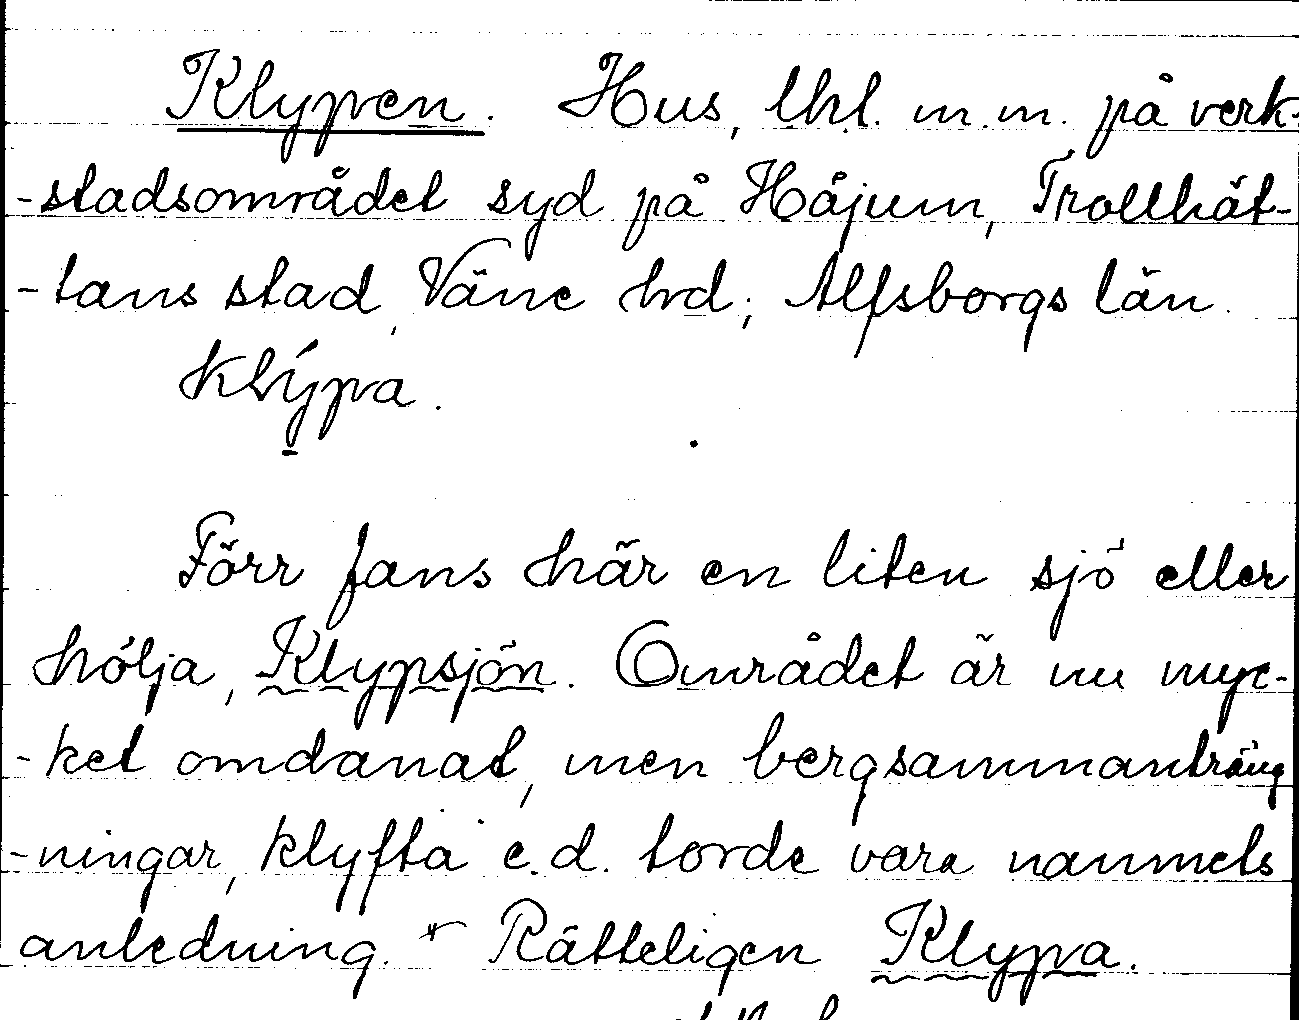 Klypen. Hus, lhl. m.m. på verk-
-stadsområdet syd på Håjum, Trollhät-
-tans stad, Väne hd; Älfsborgs län.
klýpa.
Förr fans här en liten sjö eller
hölja, Klypsjön. Området är nu myc-
-ket omdanat, men bergsammanträng
-ningar, klyfta e.d. torde vara namnets
anledning. * Rätteligen Klypa.